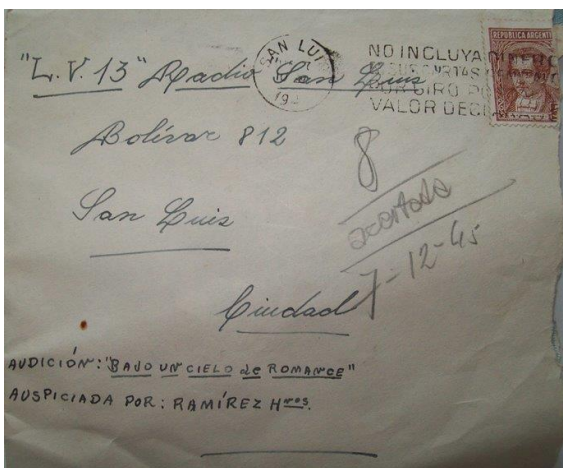 "L.V.13" Radio San Luis
SAN LUIS
19
NO INCLUYA DINERO
EN SUS CARTAS
POR GIRO PO
VALOR DECL
REPUBLICA ARGENTINA
Bolívar 812
8
San Luis
acertada
7-12-45
Ciudad
AUDICIÓN: "BAJO UN CIELO de ROMANCE"
AUSPICIADA POR: RAMÍREZ Hnos.